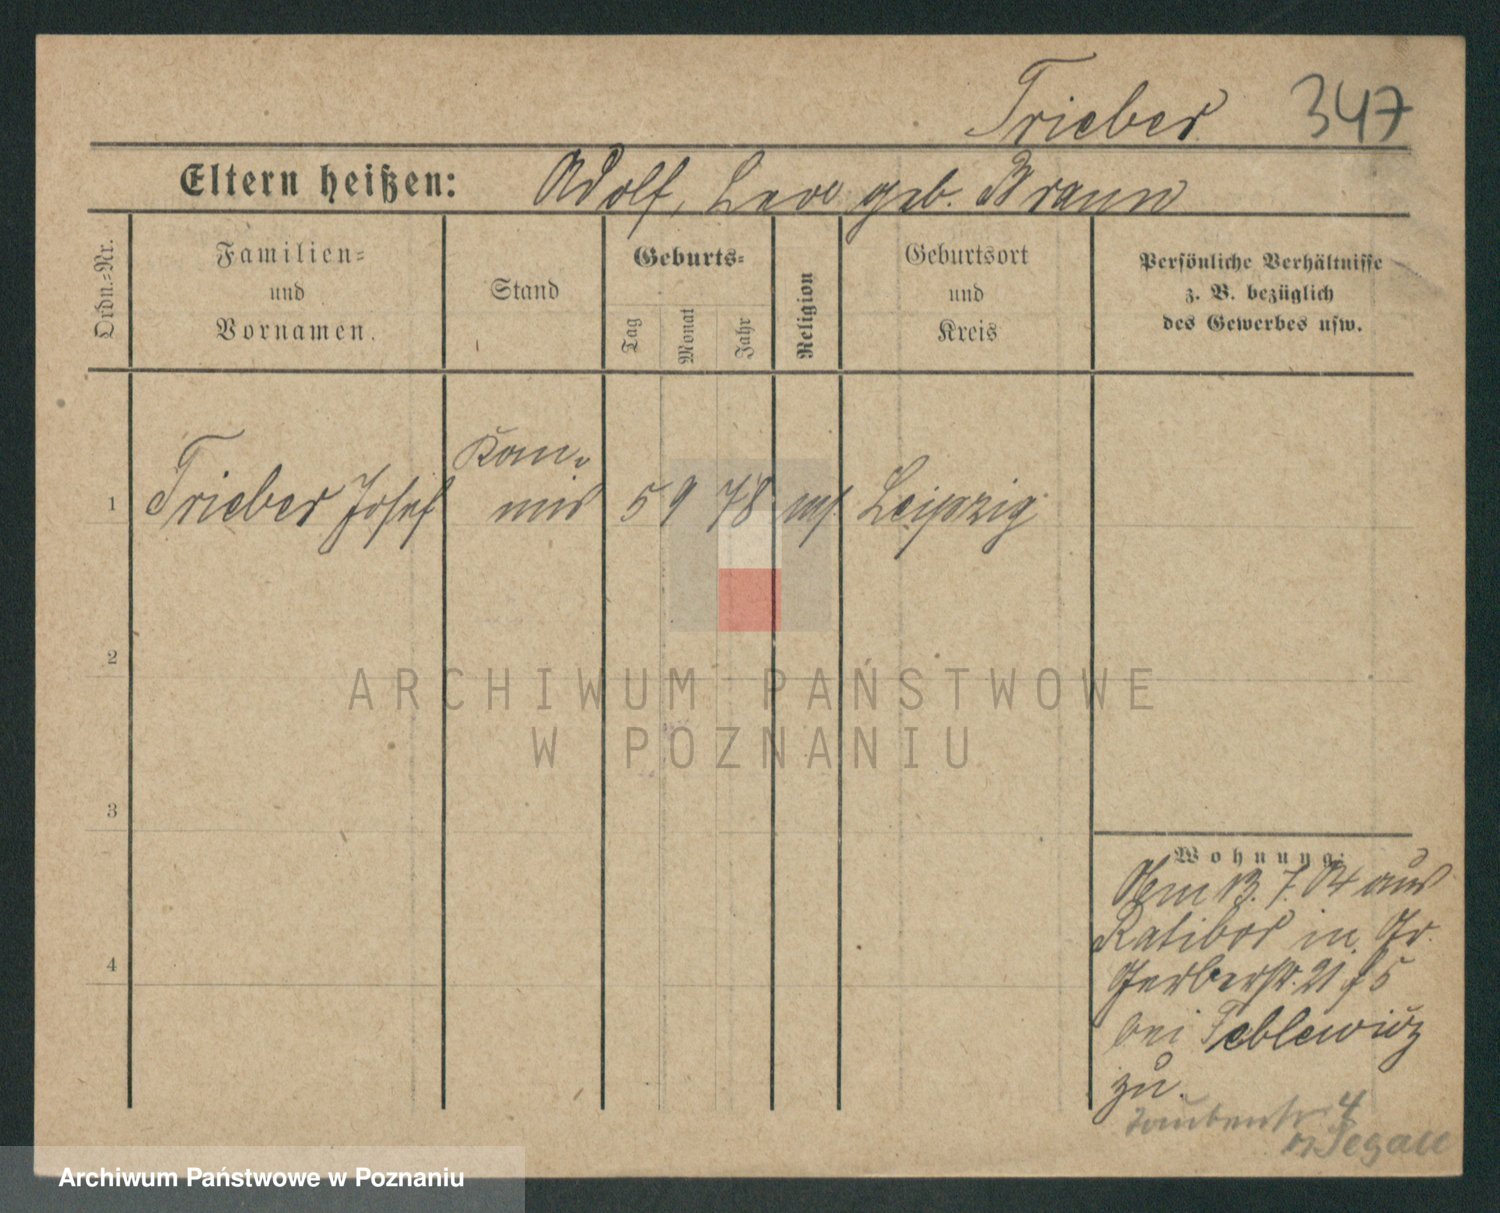 Trieber 347
Eltern heißen: Adolf, geb. Braun
Ordn.-Nr.
Familien-
und
Vornamen.
Stand
Geburts-
Tag
Monat
Jahr
Religion
Geburtsort
und
Kreis
Persönliche Verhältnisse
z. B. bezüglich
des Gewerbes usw.
1 Trieber Josef 5 9 78 Leipzig
2
3
4
Wohnung:
13. 7. 04 aus
Ratibor in Gr.
Gerberstr. 21
bei
zu.
4
ARCHIWUM PAŃSTWOWE
W POZNANIU
Archiwum Państwowe w Poznaniu